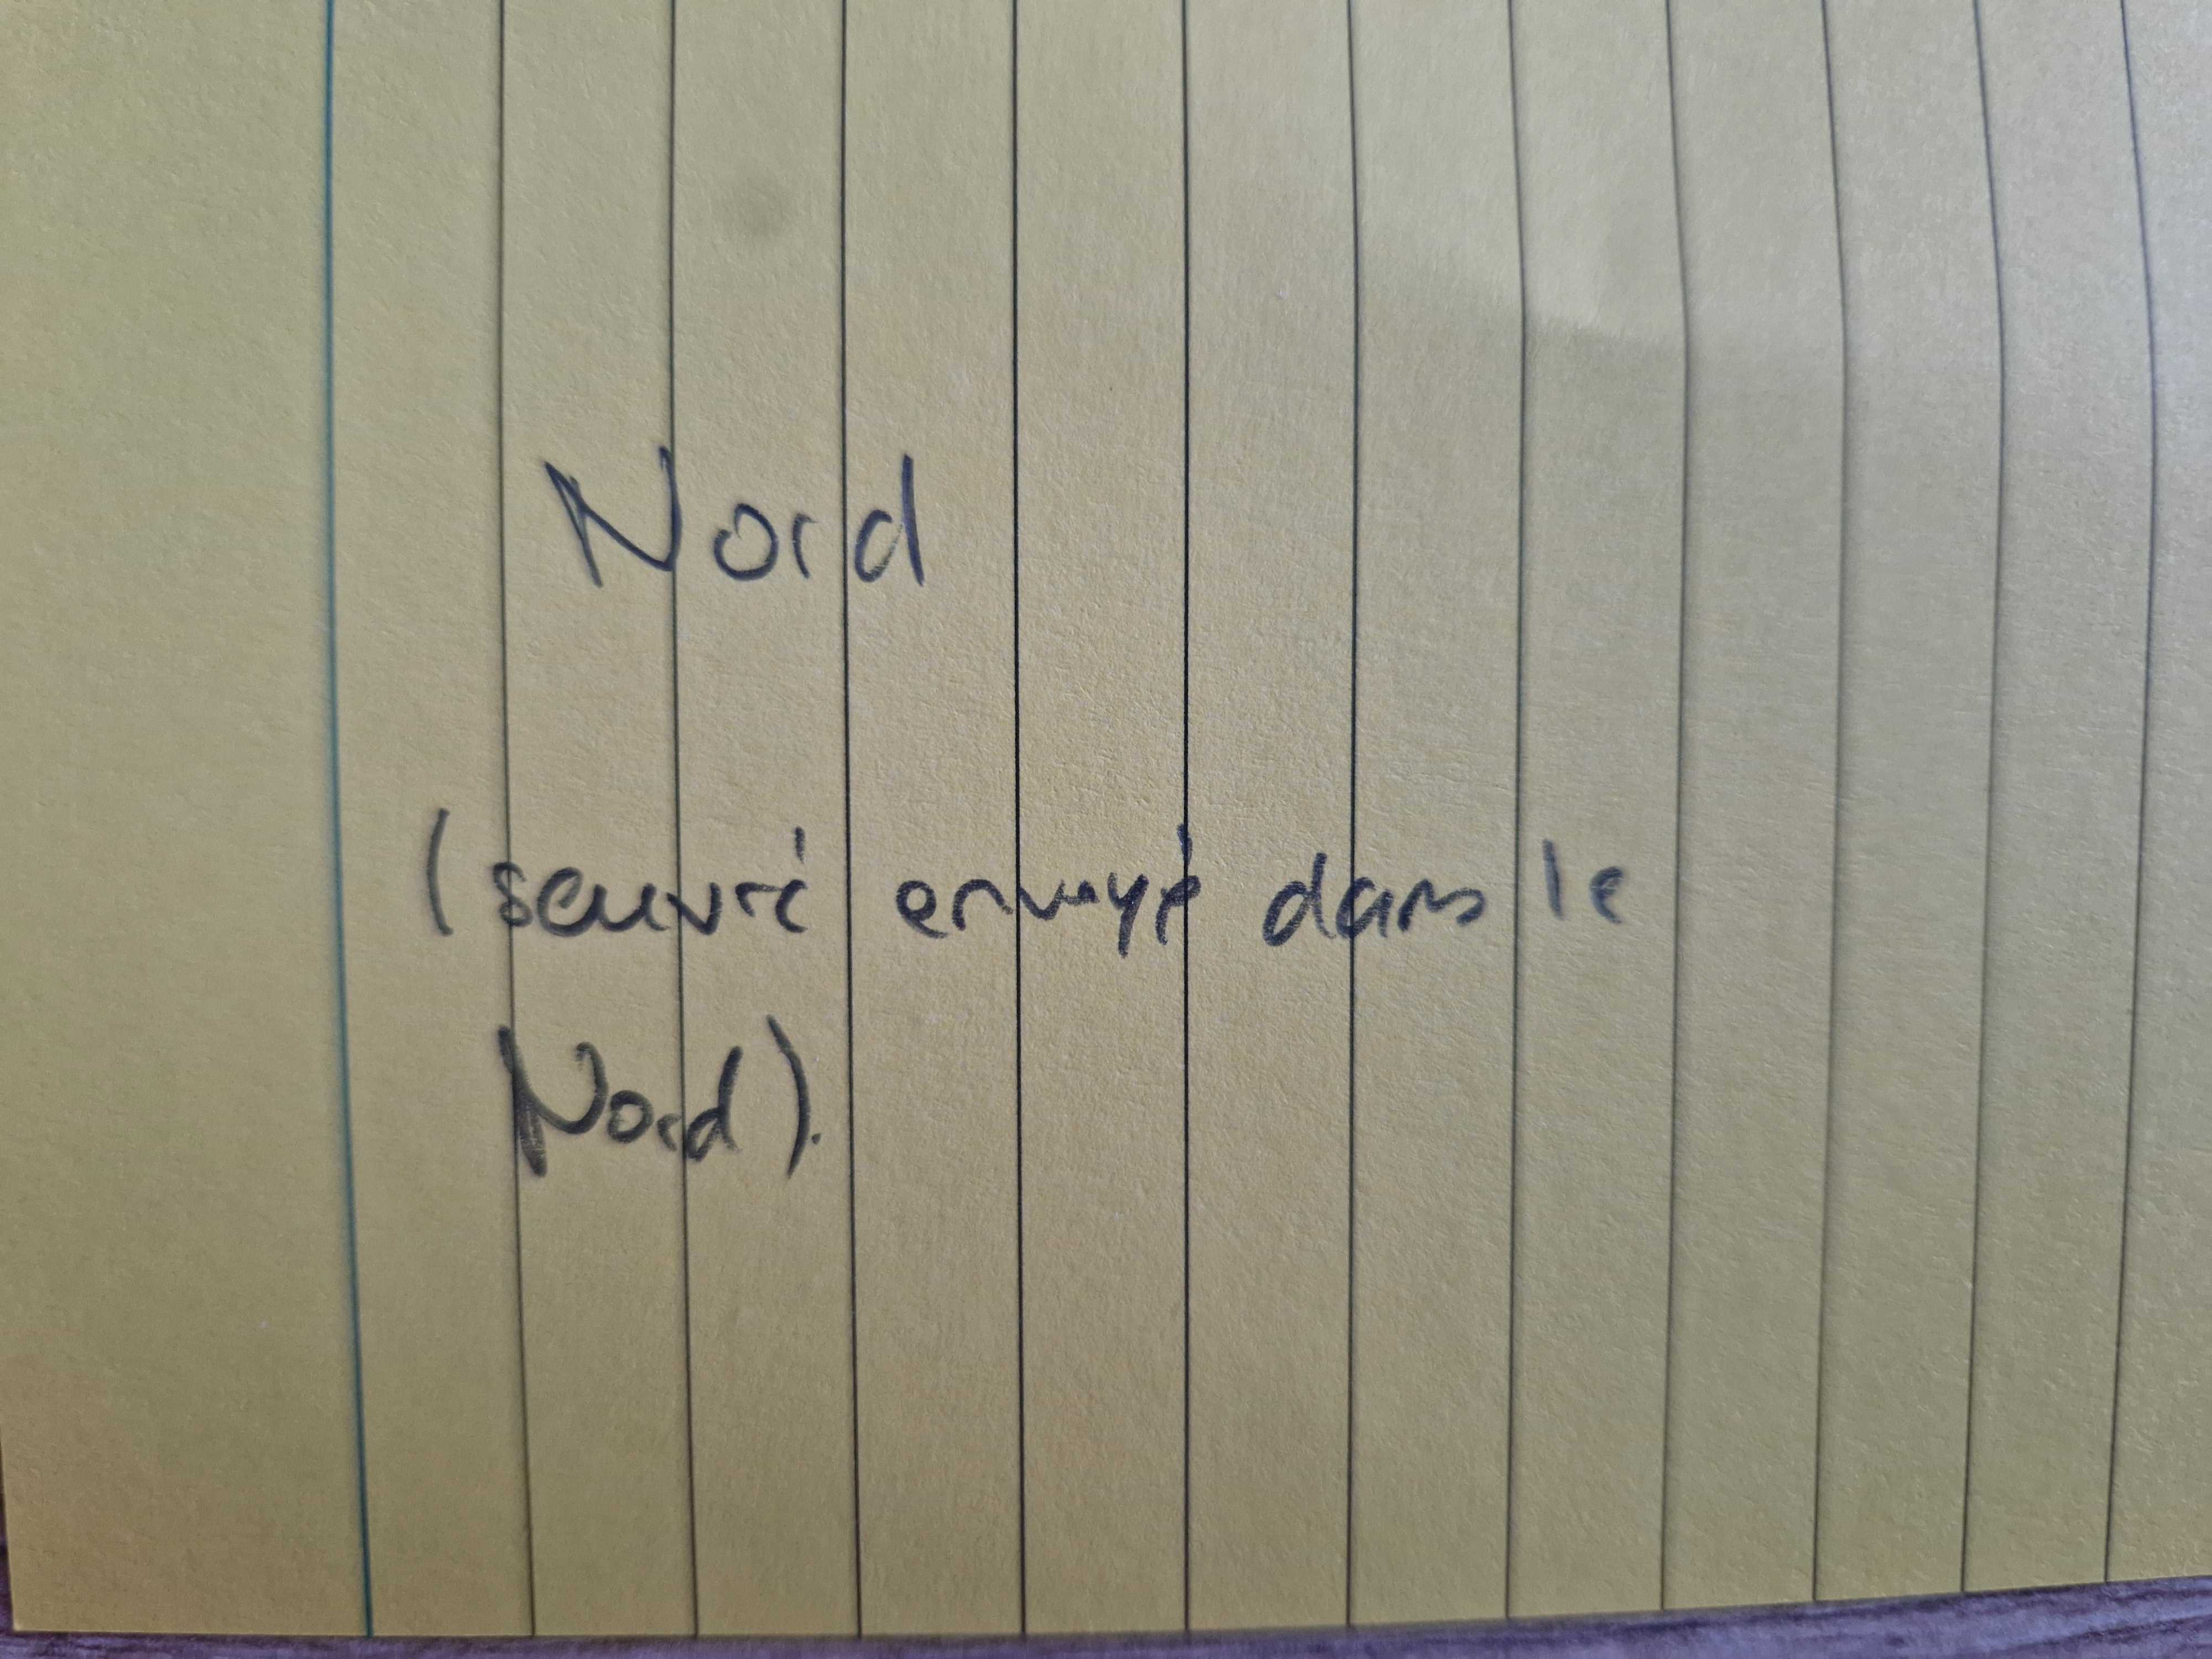 Nord
(sauvé envoyé dans le
Nord).